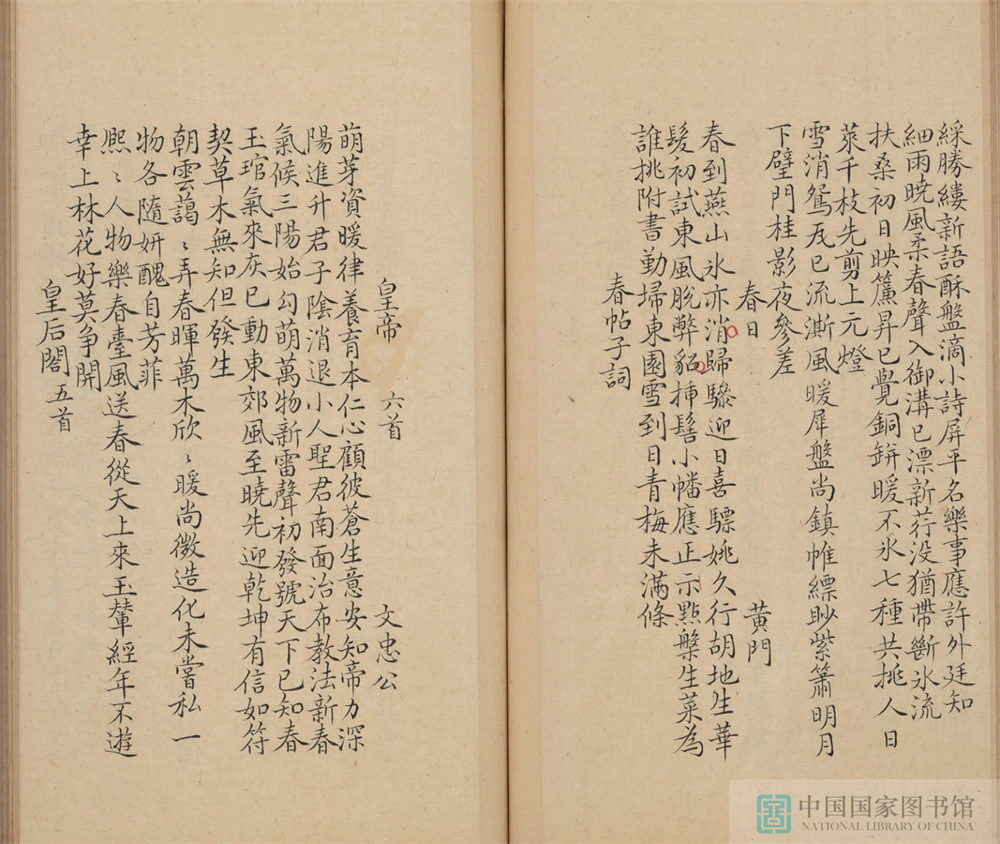 綵勝縷新語酥盤滴小詩屏平名樂事應許外廷知
細雨曉風柔春聲入御溝已漂新荇没猶帶斷冰流
扶桑初日映簾昇已覺銅鉼暖不氷七種共挑人日
菜千枝先剪上元燈
雪消鴛瓦已流澌風暖犀盤尚鎮帷縹眇紫簫明月
下壁門桂影夜參差
春日 黄門
春到燕山氷亦消歸驂迎日喜驃姚久行胡地生華
髮初試東風脫弊貂挿髻小幡應正示點槃生菜為
誰挑附書勤埽東園雪到日青梅未滿條
春帖子詞
皇帝 六首 文忠公
萌芽資暖律養育本仁心顧彼蒼生意安知帝力深
陽進升君子陰消退小人聖君南面治布教法新春
氣候三陽始勾萌萬物新雷聲初發號天下已知春
玉琯氣來灰已動東郊風至曉先迎乾坤有信如符
契草木無知但發生
朝雲藹〻弄春暉萬木欣〻暖尚微造化未嘗私一
物各隨妍醜自芳菲
熈〻人物樂春臺風送春從天上來玉輦經年不遊
幸上林花好莫争開
皇后閣 五首
中国国家图书馆
NATIONAL LIBRARY OF CHINA